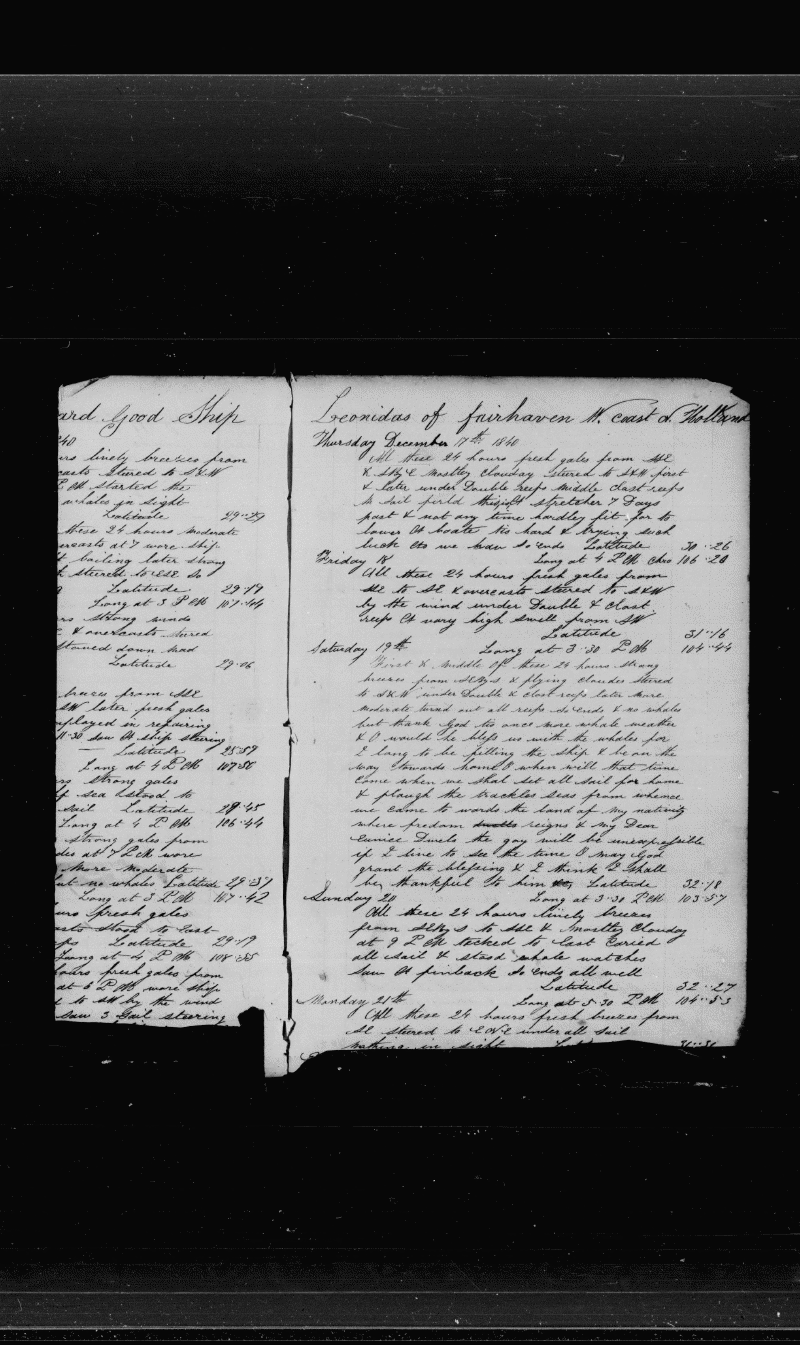 ard Good Ship
40
urs lively breezes from
casts stered to S&W
P M started the
whales in sight
Latitude 29..29
these 24 hours moderate
ercasts at 7 wore ship
boiling later strong
stered to ESE So
Latitude 29..19
Long at 3 P M 107..44
rs strong winds
& overcasts stered
Stowed down had
Latitude 29..06
breezes from SSE
SW later fresh gales
mployed in repairing
11-30 saw A ship steering
Latitude 28..59
Long at 4 P M 107..50
rs strong gales
sea stood to
sail Latitude 29..45
Long at 4 P M 106..44
strong gales from
des at 7 P M wore
More moderate
ut no whales Latitude 29..37
Long at 3 P M 107..42
urs fresh gales
asts stood to East
Latitude 29..19
Long at 4 P M 108..55
hours fresh gales from
at 5 P M wore ship
d to SW by the wind
saw 3 Sail steering
Leonidas of fairhaven W. coast N. Holland
Thursday December 17th 1840
All these 24 hours fresh gales from SSE
& SByE Mostley Clouday stered to SxW first
& later under Double reefs Middle Clost reefs
M sail firld this is A stretcher 7 Days
past & not any time hardley fit for to
lower A boate tis hard & trying sich
luck As we have So ends Latitude 30..26
Friday Long at 4 P M Chro 106-20
All these 24 hours fresh gales from
SSE to SE & overcasts stered to SxW
by the wind under Double & Clost
reefs A vary high swell from SW
Latitude 31..16
Saturday 19th Long at 3-30 P M 104-44
First & Middle Of these 24 hours strong
breezes from SEByS & flying cloudes stered
to SxW under Double & Clost reefs later more
moderate turnd out all reefs So Ends & no whales
but thank God tis once more whale weather
& O would he bless us with the whales for
I long to be filling the ship & be on the
way towards home O when will that time
Come when we shal set all sail for home
& plough the trackles seas from whence
we came to wards the land of my nativity
where fredom dwells reigns & my Dear
Eunice Dwels the goy will be unexspressible
if I live to see the time O may God
grant the blessing & I think I shall
be thankful to him Latitude 32..18
Sunday 20 Long at 3-30 P M 103..57
All these 24 hours lively breezes
from SEByS to SSE & Mostley Clouday
at 9 P M tacked to East Caried
all sail & stood whole watches
Saw A finback So ends all well
Latitude 32..27
Monday 21th Long at 5-30 P M 104..53
All these 24 hours fresh breezes from
SE stered to ENE under all sail
nothing in sight